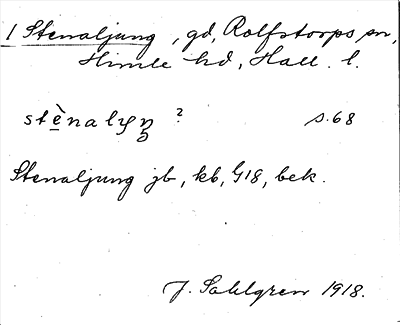 1 Stenaljung, gd, Rolfstorps sn,
Himle hd, Hall. l.
stè̱nalyŋ ? s. 68
Stenaljung jb, kb, G18, bek.
J. Sahlgren 1918.